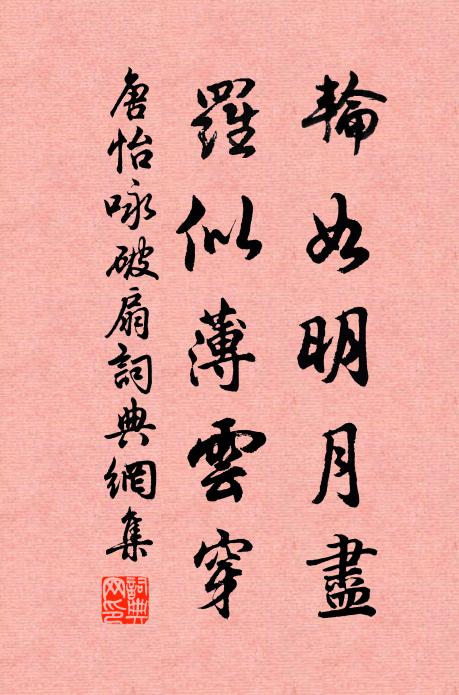 輪如明月盡
羅似薄雲穿
唐怡咏破扇詞典網集
詞典网印